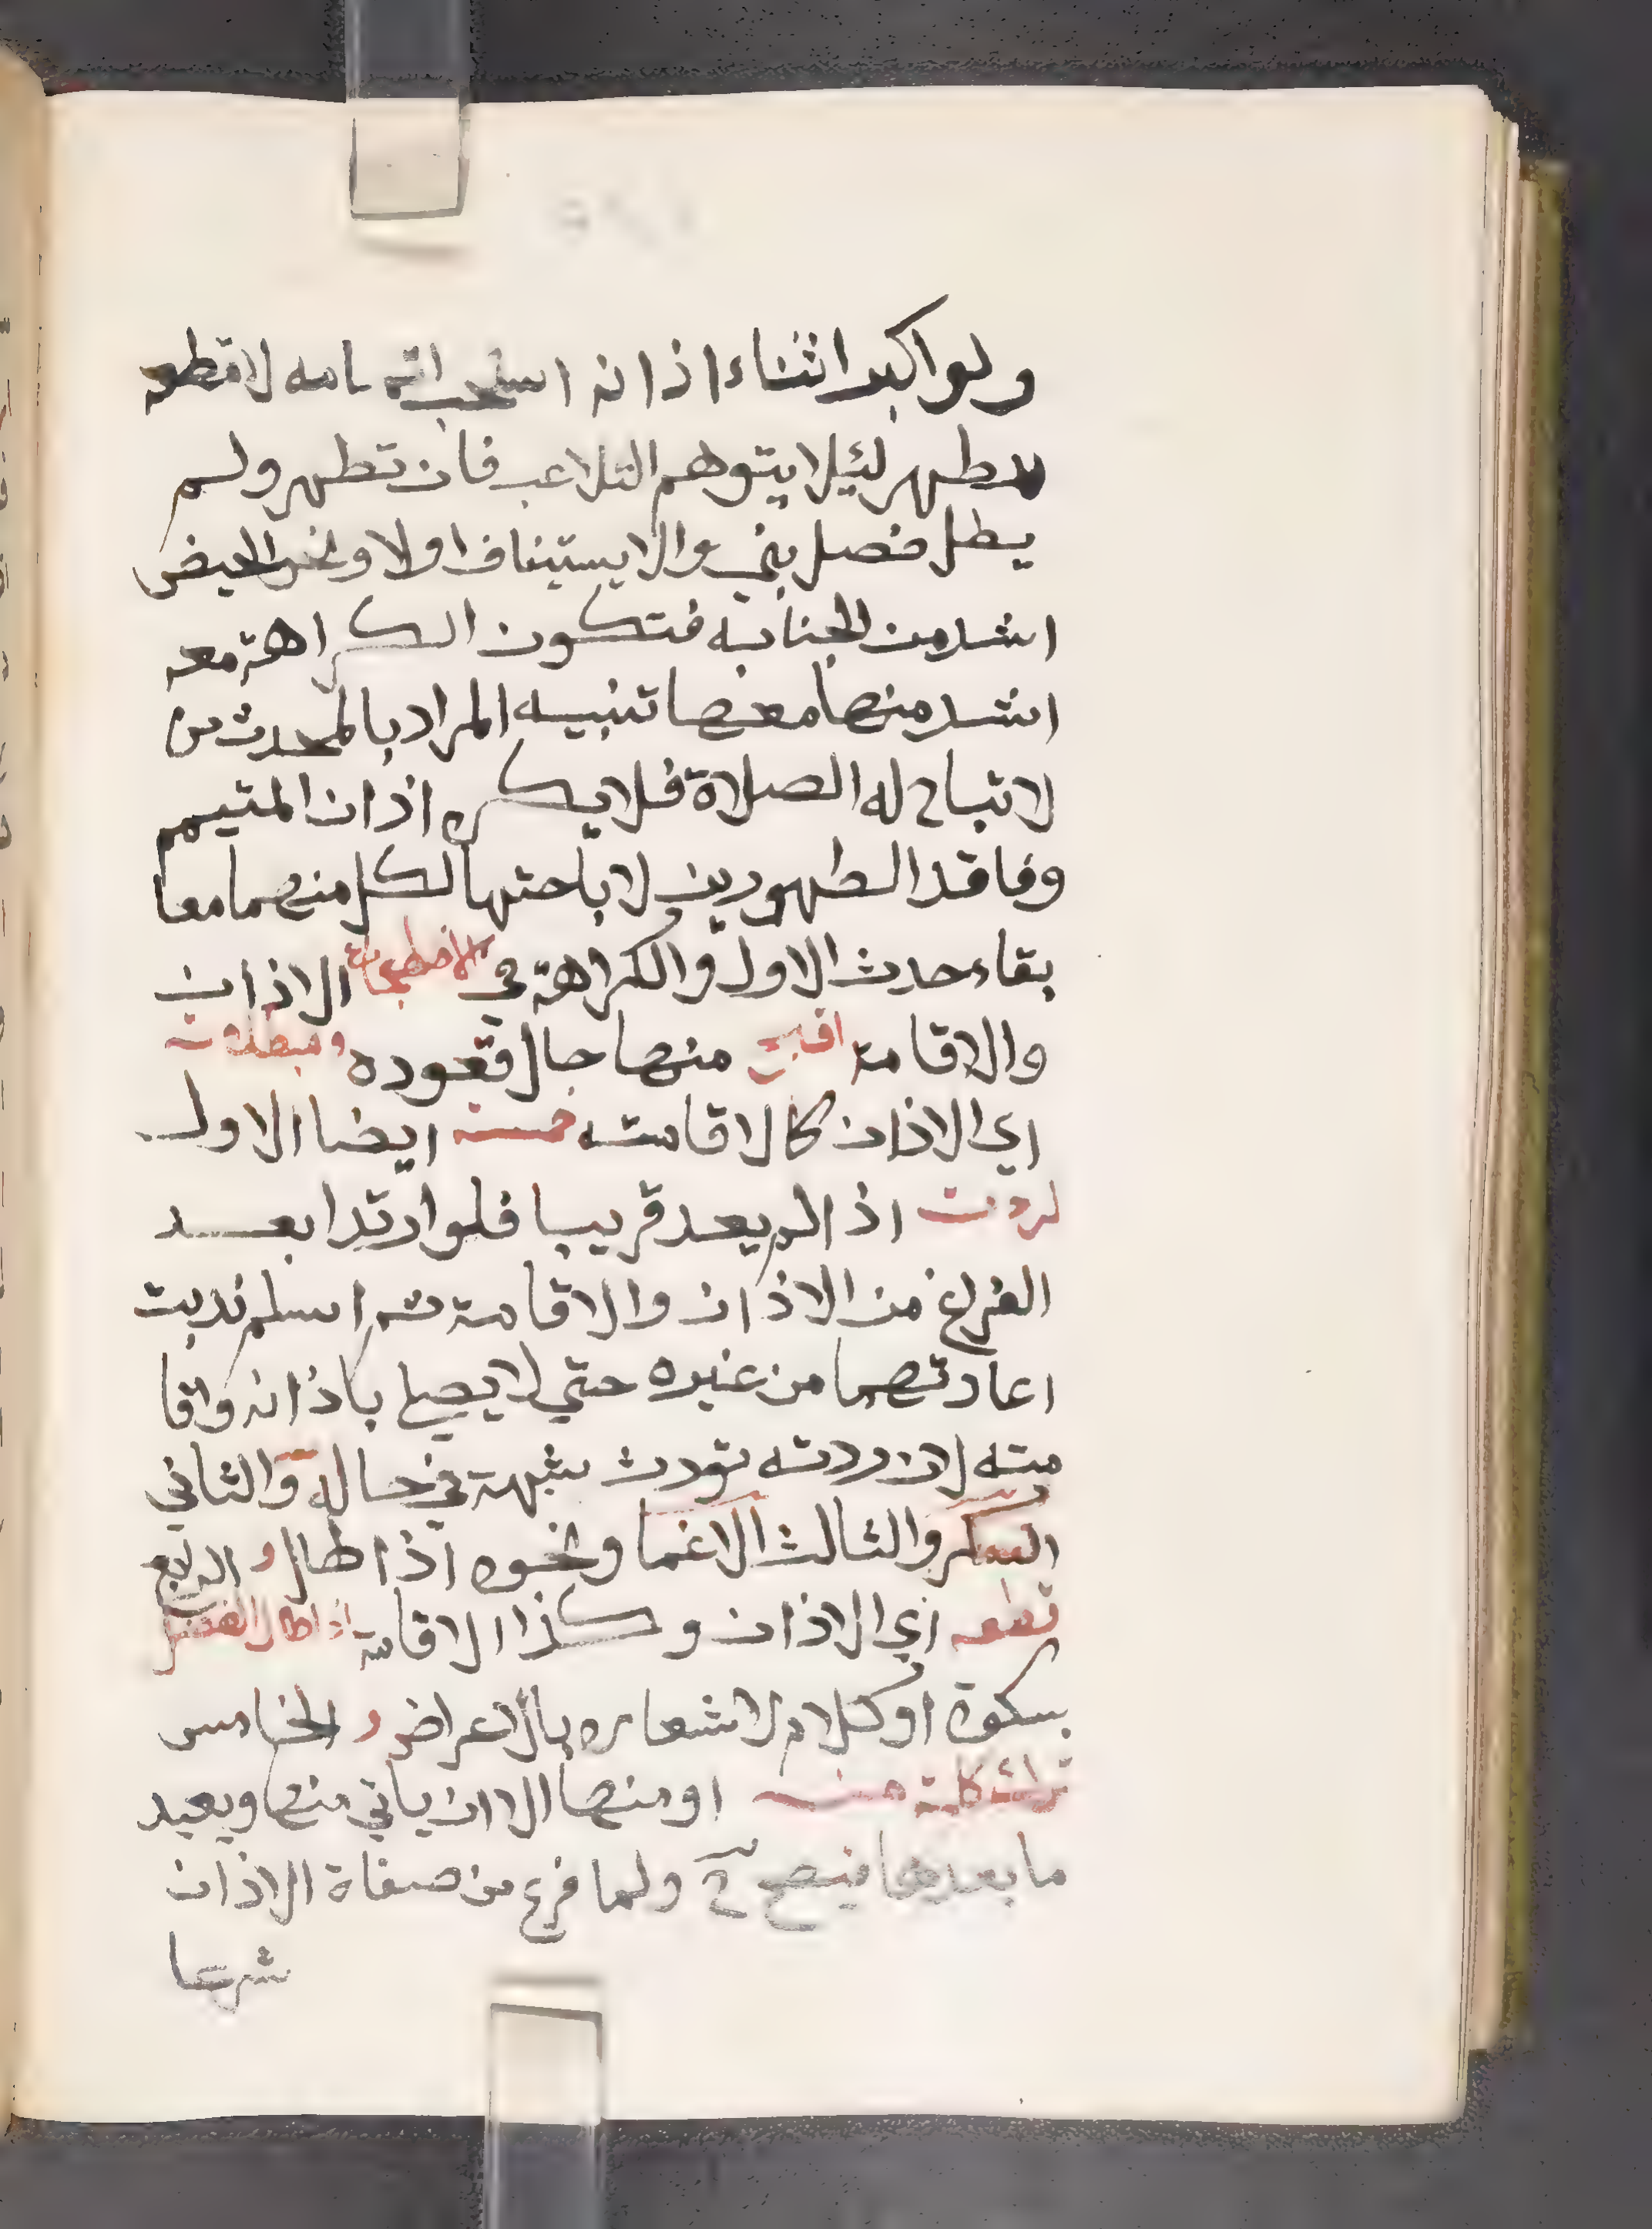 ولو اكبر اثناء اذانه استحب اتمامه لا قطعه
ليطهر ليلا يتوهم التلاعب فان تطهر ولم
يطل فصل بني والا يستيناف اولا ونحو الحيض
اشد من الجنابه فتكون الكراهة معه
اشد منها معها تنبيه المراد بالمحدث من
لا تباح له الصلاة فلا يكره اذان المتيمم
وفاقد الطهورين لاباحتها لكل منهما مع
بقاء حدث الاول والكراهة في الاضطجاع الاذان
والاقامة اقبح منها حال قعوده ومبطلات
اي الاذان كالاقامته خمسة ايضا الاول
لردت اذا لم يعد قريبا فلو ارتد ا بعد
الفراغ من الاذان والاقامة ثم اسلم ندبت
اعادتهما من غيره حتي لا يصلي باذانه واقا
مته لان ردته تورث شبهة في حاله والثاني
السكر والثالث الاغما ونحوه اذا طال و الرابع
قطعه اي الاذان وكذا الاقامة اذا طال الفصل
بسكوة او كلام لاشعاره بالاعراض و الخامس
ترك كلمة منه او منها الا ان ياتي منها ويعيد
ما بعدها فيصح ولما فرغ من صفاة الاذان
شرعا